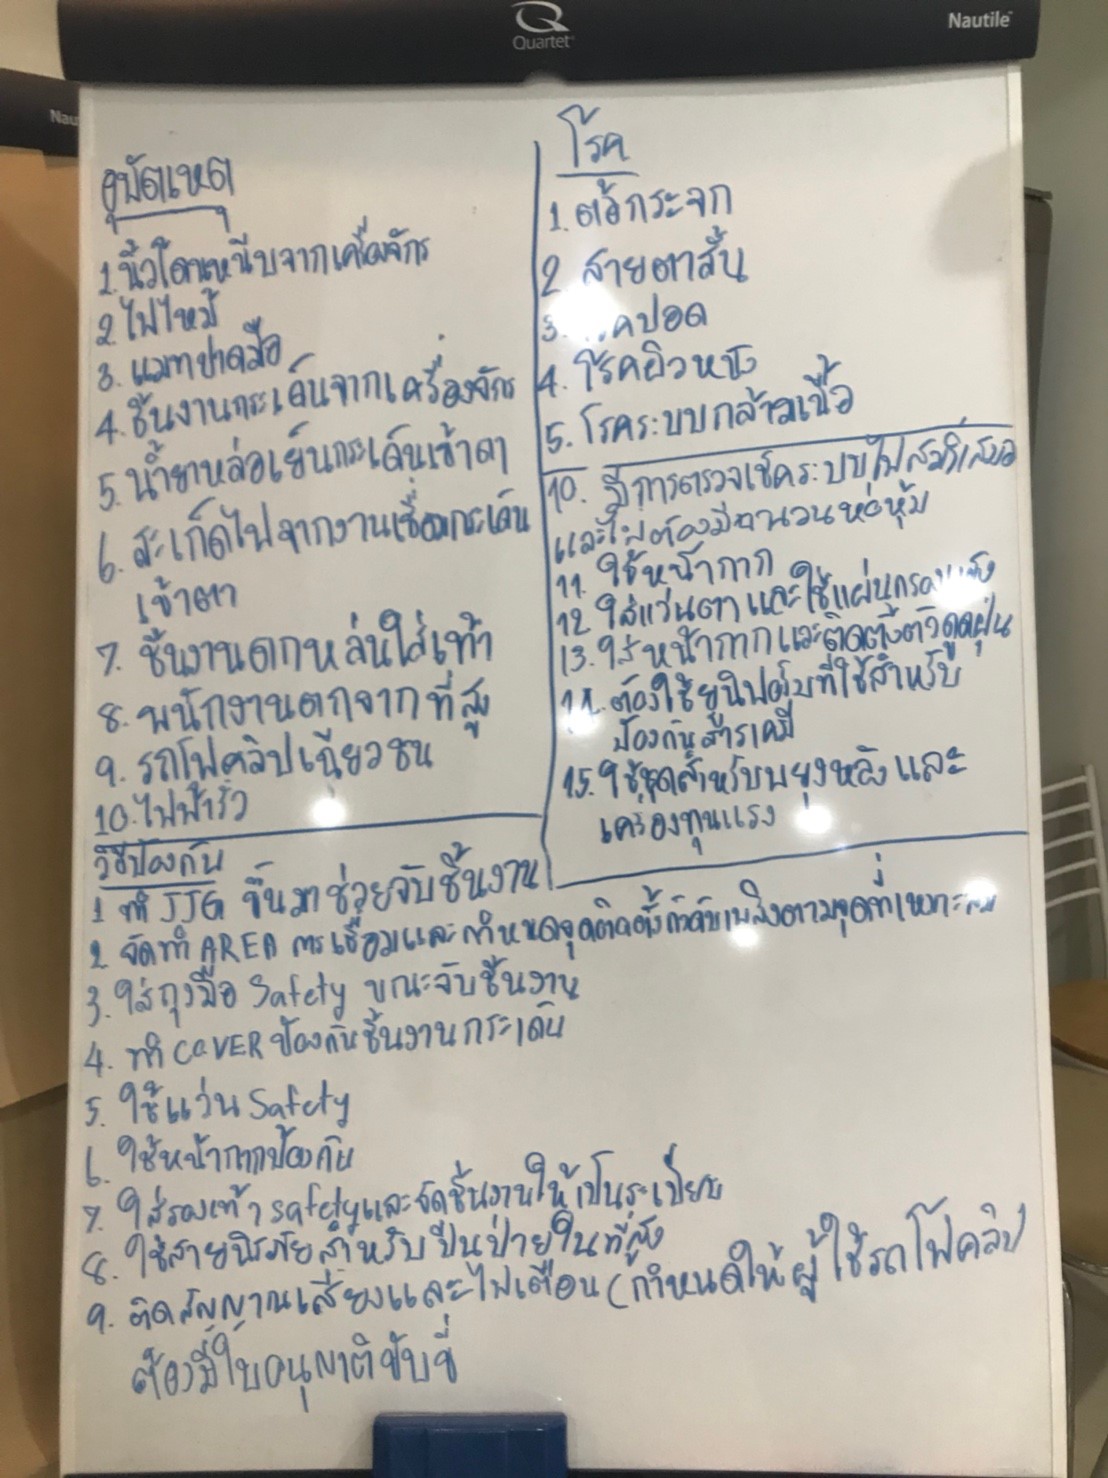 Quartet
Nautile
Nau
อุบัติเหตุ
1. นิ้วโดนหนีบจากเครื่องจักร
2. ไฟไหม้
3. แมทบาดมือ
4. ชิ้นงานกระเด็นจากเครื่องจักร
5. น้ำยาหล่อเย็นกระเด็นเข้าตา
6. สะเก็ดไฟจากงานเชื่อมกระเด็น
เข้าตา
7. ชิ้นงานตกหล่นใส่เท้า
8. พนักงานตกจากที่สูง
9. รถโฟคลิปเฉี่ยวชน
10. ไฟฟ้ารั่ว
โรค
1. ต้อกระจก
2. สายตาสั้น
3. โรคปอด
4. โรคผิวหนัง
5. โรคระบบกล้ามเนื้อ
10. มีการตรวจเช็คระบบไฟสม่ำเสมอ
และไฟต้องมีฉนวนห่อหุ้ม
11. ใช้หน้ากาก
12. ใส่แว่นตาและใช้แผ่นกรองแสง
13. ใส่หน้ากากและติดตั้งตัวดูดฝุ่น
14. ต้องใช้ยูนิฟอร์มที่ใช้สำหรับ
ป้องกันสารเคมี
15. ใช้ชุดสำหรับพยุงหลังและ
เครื่องทุนแรง
วิธีป้องกัน
1 ทำ JJG ขึ้นมาช่วยจับชิ้นงาน
2 จัดทำ AREA การเชื่อมและกำหนดจุดติดตั้งถังดับเพลิงตามจุดที่เหมาะสม
3. ใส่ถุงมือ Safety ขณะจับชิ้นงาน
4. ทำ COVER ป้องกันชิ้นงานกระเด็น
5. ใช้แว่น Safety
6. ใช้หน้ากากป้องกัน
7. ใส่รองเท้า safety และจัดชิ้นงานให้เป็นระเบียบ
8. ใช้สายนิรภัยสำหรับปีนป่ายในที่สูง
9. ติดสัญญาณเสียงและไฟเตือน (กำหนดให้ผู้ใช้รถโฟคลิป
ต้องมีใบอนุญาติขับขี่